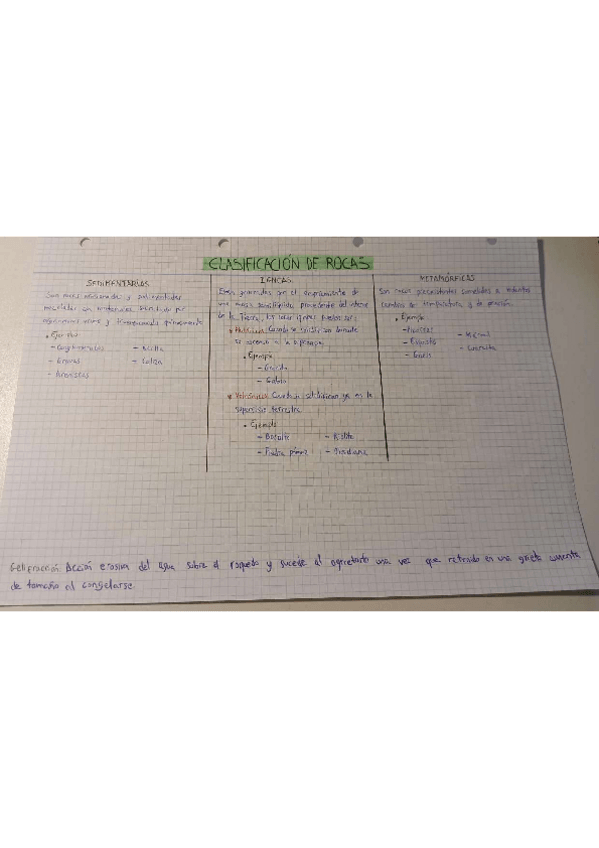 CLASIFICACIÓN DE ROCAS
SEDIMENTARIAS
Son rocas y
materiales
y transformado químicamente
• Ejemplos
- Conglomerados - Arcilla
- Arenas - Caliza
- Areniscas
ÍGNEAS
Están generadas por el enfriamiento de
una masa proveniente del interior
de la Tierra, las rocas ígneas pueden ser:
Cuando se enfrían
• Ejemplo
- Granito
- Gabro
• Volcánicas: Cuando se solidifican ya en la
superficie terrestre.
• Ejemplo
- Basalto - Riolita
- Piedra pómez
METAMÓRFICAS
Son rocas preexistentes sometidas a
cambios de temperatura y de presión.
• Ejemplo
- Pizarras - Mármol
- Esquisto - Cuarcita
- Gneis
Gelifracción: Acción erosiva del agua sobre el roquedo y sucede al agrietarlo una vez que retenida en una grieta aumenta
de tamaño al congelarse.